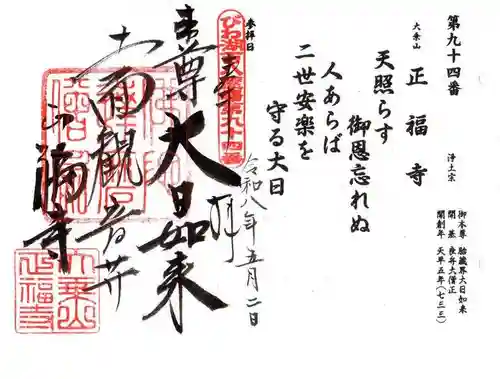 第九十四番
大乗山 正福寺 浄土宗
御本尊 胎蔵界大日如来
開基 良弁大僧正
開創年 天平五年(七三三)
天照らす
御恩忘れぬ
人あらば
二世安楽を
守る大日
参拝日
令和八年五月二日
びわ湖百八霊場第九十四番
奉拝
本尊 大日如来
十一面観音廾
正福寺
大乗山
正福寺